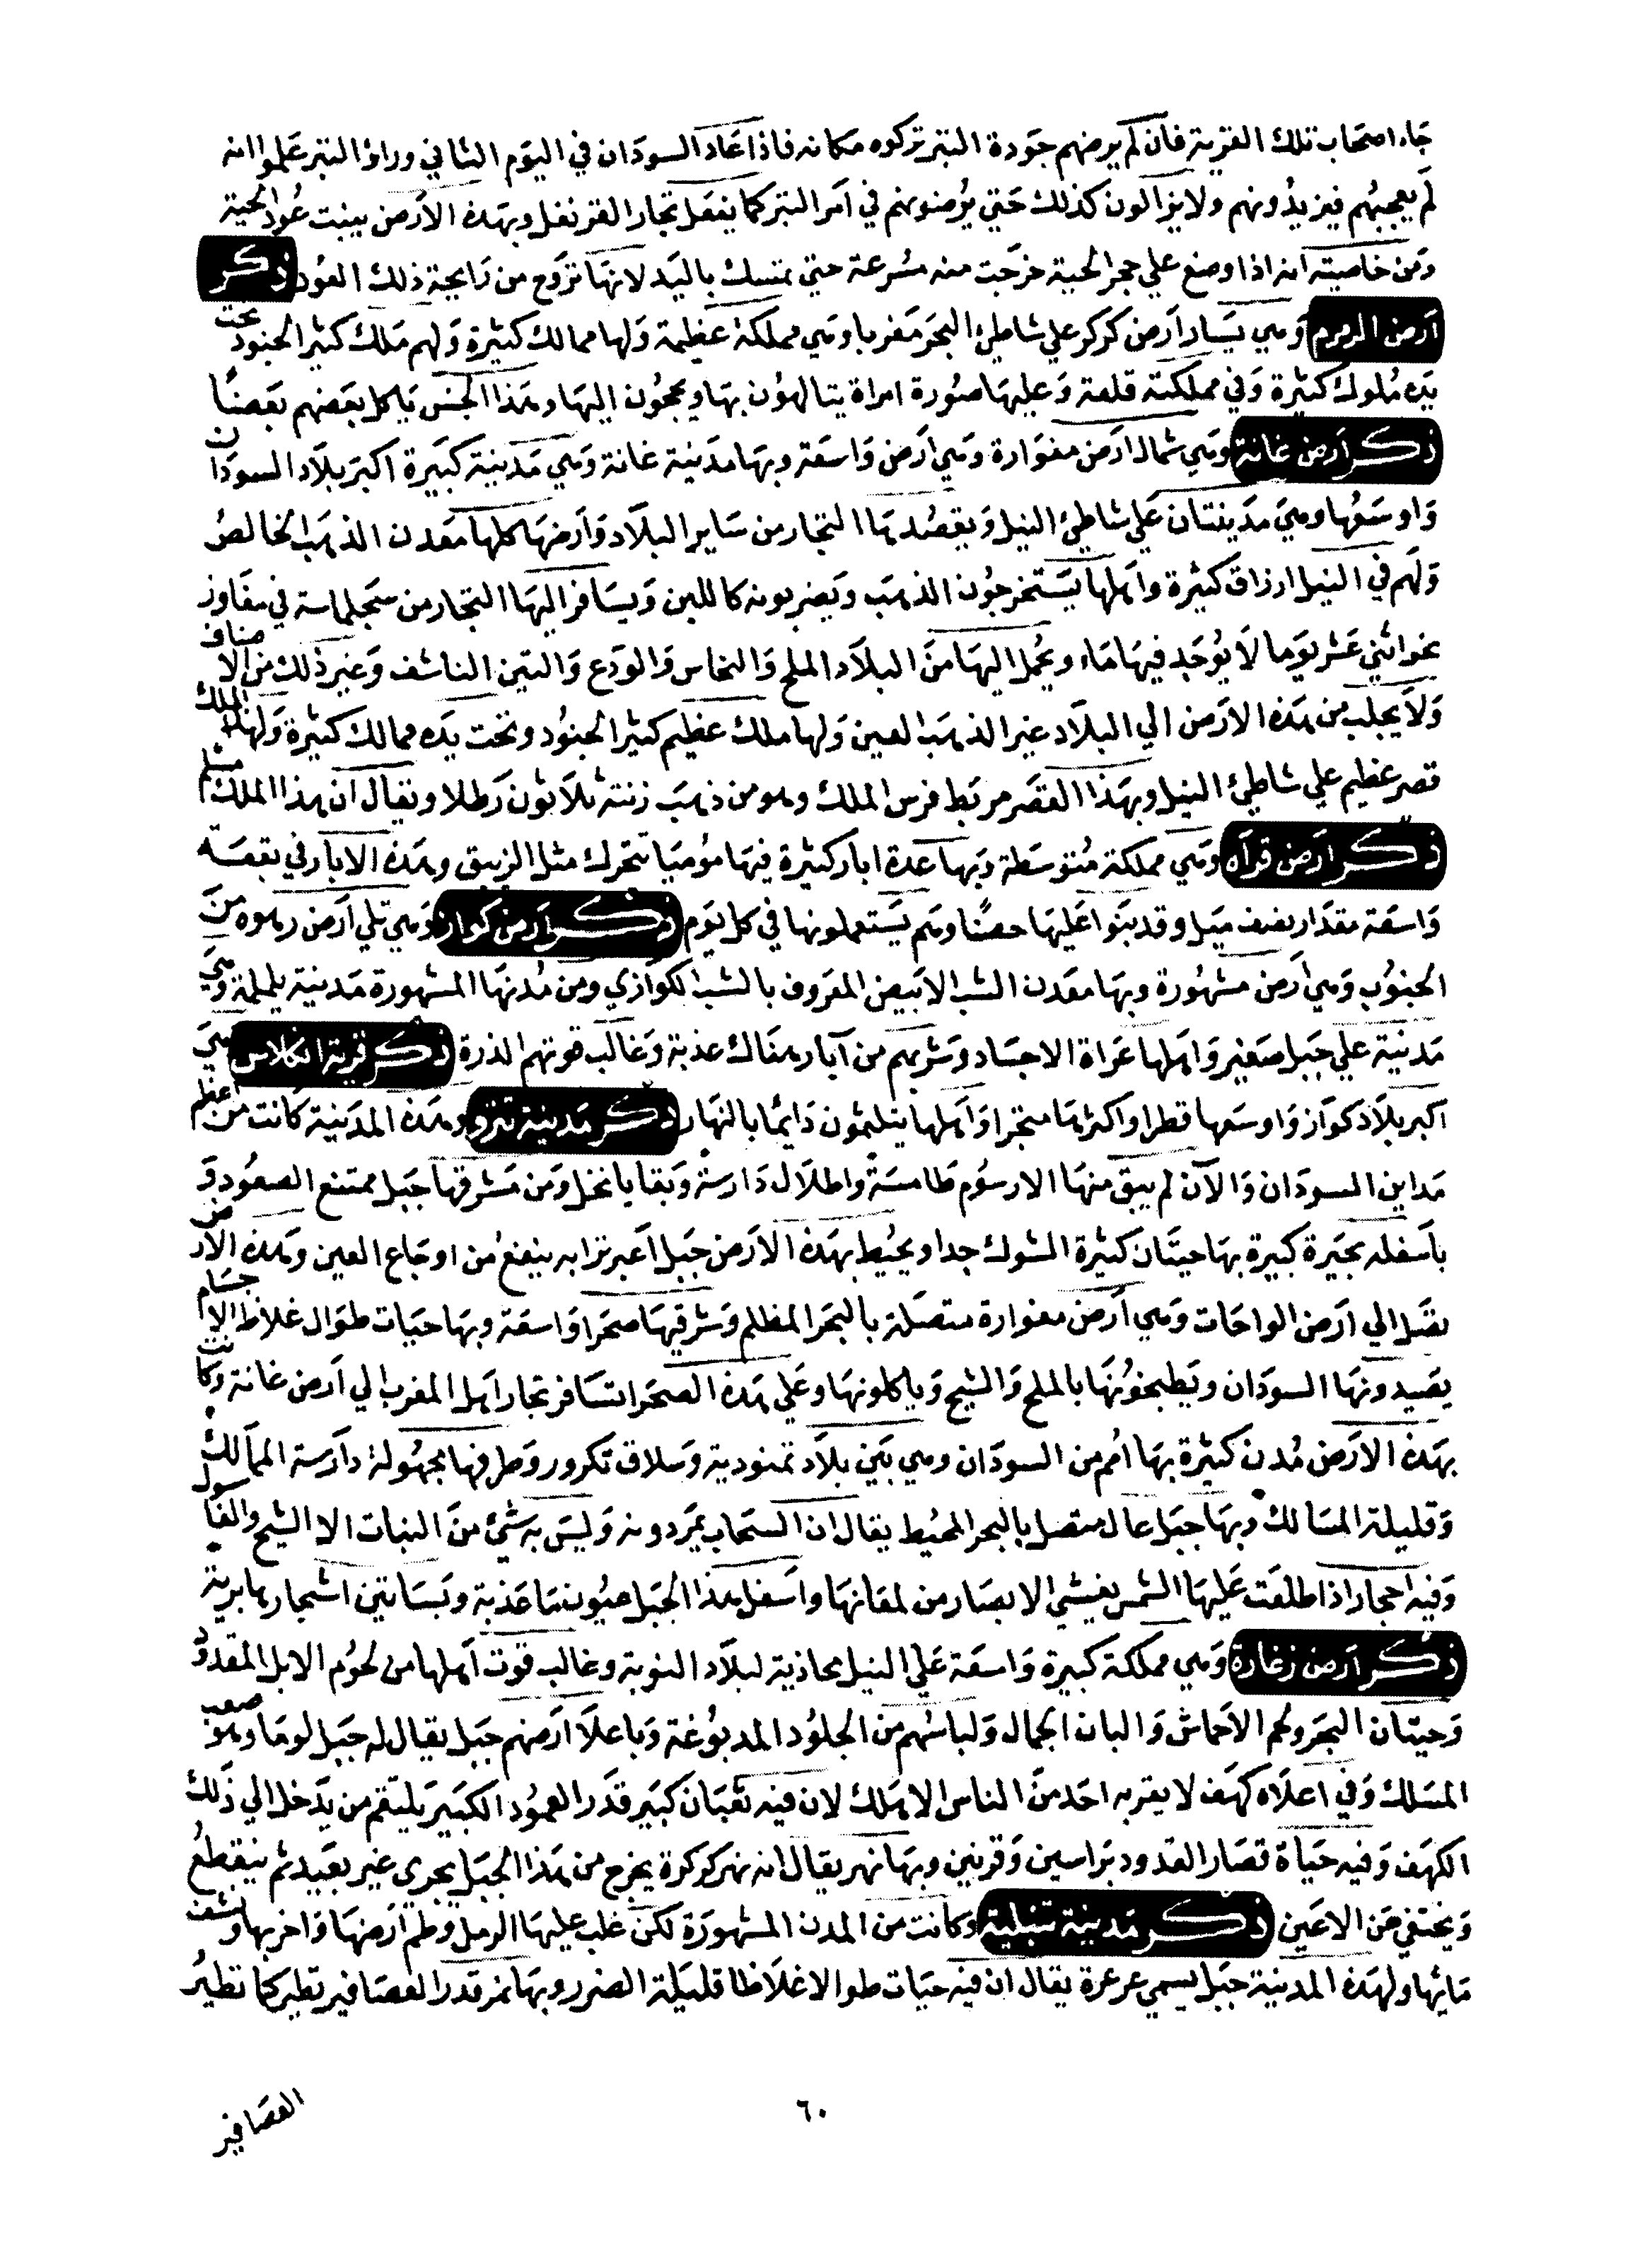 جاء اصحاب تلك القرية فان لم يرضهم جودة التبر تركوه مكانه فاذا عاد السودان في اليوم الثاني وراوا التبر علموا انه
لم يعجبهم فيزيدونهم ولا يزالون كذلك حتي يرضونهم في امر التبر كما يفعل تجار القرنفل وبهذه الارض ينبت عود الحية
ومن خاصيته انه اذا وضع علي حجر الحية خرجت منه مسرعة حتي تمسك باليد لانها تروح من رايحة ذلك العود ذكر
ارض الدمدم وهي يسار ارض كركر علي شاطئ البحر مغربا وهي مملكة عظيمة ولها ممالك كثيرة ولهم ملك كثير الجنود تحت
يده ملوك كثيرة وفي مملكته قلعة وعليها صورة امراة يتالهون بها ويحجون اليها وهذا الجنس ياكل بعضهم بعضا
ذكر ارض غانة وهي شمال ارض مغوارة وهي ارض واسعة وبها مدينة غانة وهي مدينة كبيرة اكبر بلاد السودان
واوسعها وهي مدينتان علي شاطئ النيل ويقصدها التجار من ساير البلاد وارضها كلها معدن الذهب الخالص
ولهم في النيل ارزاق كثيرة واهلها يستخرجون الذهب ويضربونه كاللبن ويسافر اليها التجار من سجلماسة في مفاوز
نحو اثني عشر يوما لا يوجد فيها ماء ويحمل اليها من البلاد الملح والنحاس والودع والتين الناشف وغير ذلك من الاصناف
ولا يجلب من هذه الارض الي البلاد غير الذهب العين ولها ملك عظيم كثير الجنود وتحت يده ممالك كثيرة ولهذا الملك
قصر عظيم علي شاطئ النيل وبهذا القصر مربط فرس الملك وهو من ذهب زنته ثلاثون رطلا ويقال ان هذا الملك مسلم
ذكر ارض قرآن وهي مملكة متوسطة وبها عدة ابار كثيرة فيها موميا تتحرك مثل الزيبق وهذه الابار في بقعة
واسعة مقدار نصف ميل وقد بنوا عليها حصنا وهم يستعملونها في كل يوم ذكر ارض كوار وهي تلي ارض من
الجنوب وهي ارض مشهورة وبها معدن الشب الابيض المعروف بالشب الكوازي ومن مدنها المشهورة مدينة يلملمة وهي
مدينة علي جبل صغير واهلها عراة الاجساد وشربهم من آبار هناك عذبة وغالب قوتهم الذرة ذكر قرية انكلاس وهي
اكبر بلاد كواز واوسعها قطرا واكثرها متجرا واهلها يتلثمون دايما بالنهار ذكر مدينة تنزو وهذه المدينة كانت من اعظم
مداين السودان والآن لم يبق منها الا رسوم طامسة واطلال دارسة وبقايا نخل ومن مشرقها جبل ممتنع الصعود و
باسفله بحيرة كبيرة بها حيتان كثيرة الشوك جدا ويحيط بهذه الارض جبل اغبر ترابه ينفع من اوجاع العين وهذه الارض
تصل الي ارض الواحات وهي ارض مغوارة متصلة بالبحر المظلم وشرقيها صحرا واسعة وبها حيات طوال غلاظ الاجسام
يصيدونها السودان ويطبخونها بالملح والشيح وياكلونها وعلي هذه الصحرا تسافر تجار اهل المغرب الي ارض غانة وكانت
بهذه الارض مدن كثيرة بها امم من السودان وهي بين بلاد تمنودية وسلاق تكرور وطرفها مجهولة دارسة الممالك
وقليلة المسالك وبها جبل عال متصل بالبحر المحيط يقال ان السحاب يمر دونه وليس به شئ من النبات الا الشيح والغاسول
وفيه احجار اذا طلعت عليها الشمس يغيشي الابصار من لمعانها واسفل هذا الجبل عيون ماء عذبة وبساتين اشجارها برية
ذكر ارض زغارة وهي مملكة كبيرة واسعة علي النيل محاذية لبلاد النوبة وغالب قوت اهلها من لحوم الابل المقدود
وحيتان البحر ولحم الاحاش والبان الجمال ولباسهم من الجلود المدبوغة وباعلا ارضهم جبل يقال له جبل لوما وهو صعب
المسلك وفي اعلاه كهف لا يقربه احد من الناس الا هلك لان فيه ثعبان كبير قدر العمود الكبير يلتقم من يدخل الي ذلك
الكهف وفيه حياة قصار القدود براسين وقرنين وبها نهر يقال انه نهر كوكرة يخرج من هذا الجبل يجري غير بعيد ثم ينقطع
ويختفي عن الاعين ذكر مدينة وكانت من المدن المشهورة لكن غلب عليها الرمل وطم ارضها واخربها ونشف
مائها ولهذه المدينة جبل يسمي عرعرة يقال ان فيه حيات طوالا غلاظا قليلة الضرر وبها نمر قدر العصافير تطير كما تطير
٦٠
العصافير